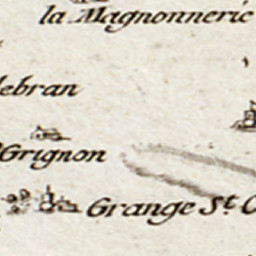 la Magnonnerie
ebran
Grignon
Grange St.